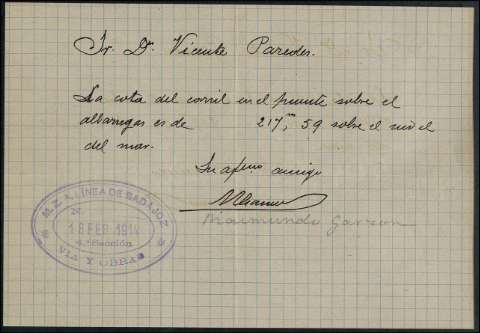 Sr. Dn. Vicente Paredes.
La cota del carril en el puente sobre el
albarregas es de 217,m 59 sobre el nivel
del mar.
Su afmo amigo
Raimundo Garzon
M.Z.A. LÍNEA DE BADAJOZ
18 FEB 1914
4.ª Sección
VIA Y OBRAS